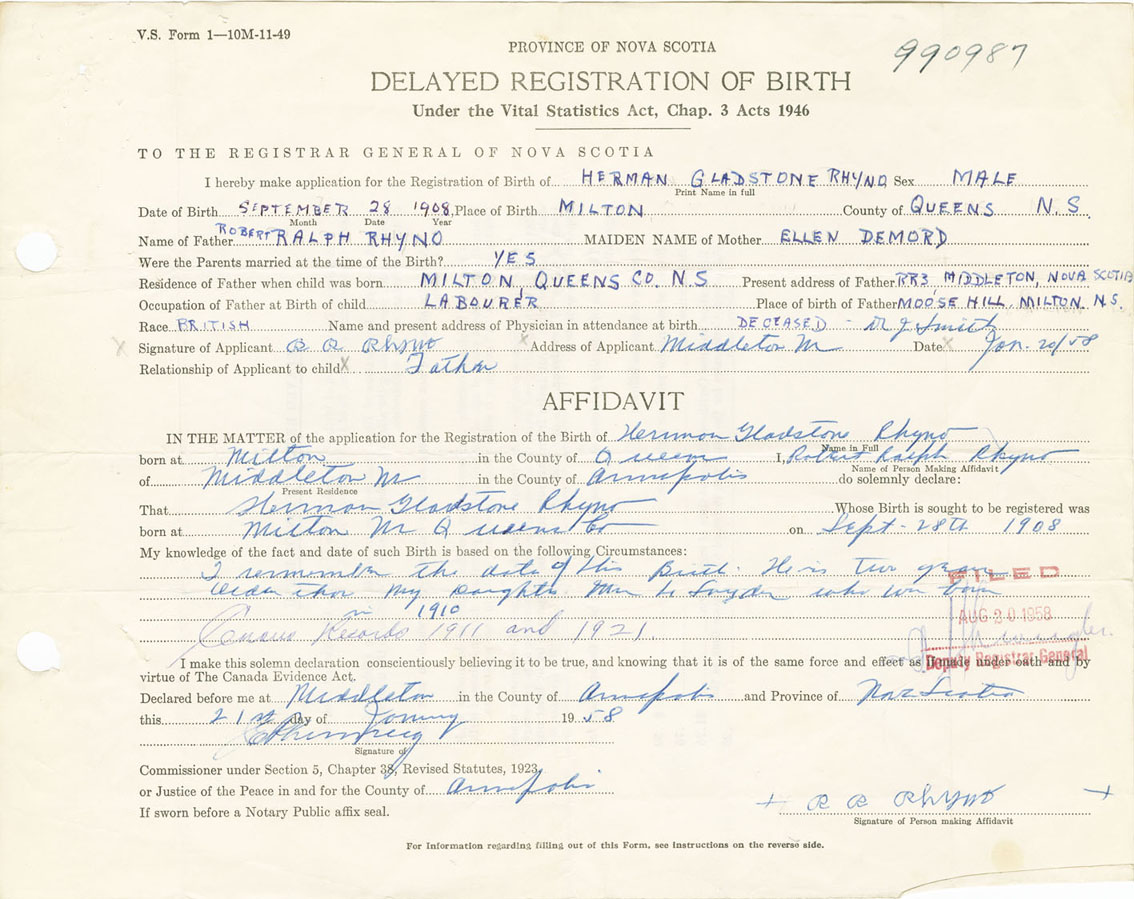 V.S. Form 1—10M-11-49
990987
PROVINCE OF NOVA SCOTIA
DELAYED REGISTRATION OF BIRTH
Under the Vital Statistics Act, Chap. 3 Acts 1946
TO THE REGISTRAR GENERAL OF NOVA SCOTIA
I hereby make application for the Registration of Birth of HERMAN GLADSTONE RHYNO Sex MALE
Print Name in full
Date of Birth SEPTEMBER 28 1908 Place of Birth MILTON County of QUEENS N.S.
Month Date Year
Name of Father ROBERT RALPH RHYNO MAIDEN NAME of Mother ELLEN DEMORD
Were the Parents married at the time of the Birth? YES
Residence of Father when child was born MILTON, QUEENS CO. N.S Present address of Father RR3, MIDDLETON, NOVA SCOTIA
Occupation of Father at Birth of child LABOURER Place of birth of Father MOOSE HILL, MILTON, N.S.
Race BRITISH Name and present address of Physician in attendance at birth DECEASED - Dr J Smith
x Signature of Applicant R R Rhyno x Address of Applicant Middleton Date x Jan. 20/58
Relationship of Applicant to child x Father
AFFIDAVIT
IN THE MATTER of the application for the Registration of the Birth of Herman Gladstone Rhyno
Name in Full
born at Milton in the County of Queens I, Robert Ralph Rhyno
Name of Person Making Affidavit
of Middleton in the County of Annapolis do solemnly declare:
Present Residence
That Herman Gladstone Rhyno Whose Birth is sought to be registered was
born at Milton Queens Co on Sept. 28th 1908
My knowledge of the fact and date of such Birth is based on the following Circumstances:
I remember the date of this Birth. He is two years
older than my daughter Snyder who was born
in 1910
Census Records 1911 and 1921.
FILED
AUG 20 1958
Deputy Registrar General
I make this solemn declaration conscientiously believing it to be true, and knowing that it is of the same force and effect as if made under oath and by
virtue of The Canada Evidence Act.
Declared before me at Middleton in the County of Annapolis and Province of Nova Scotia
this 21st day of January 1958
Signature of
Commissioner under Section 5, Chapter 38, Revised Statutes, 1923,
or Justice of the Peace in and for the County of Annapolis
If sworn before a Notary Public affix seal.
R R Rhyno
Signature of Person making Affidavit
For Information regarding filling out of this Form, see instructions on the reverse side.